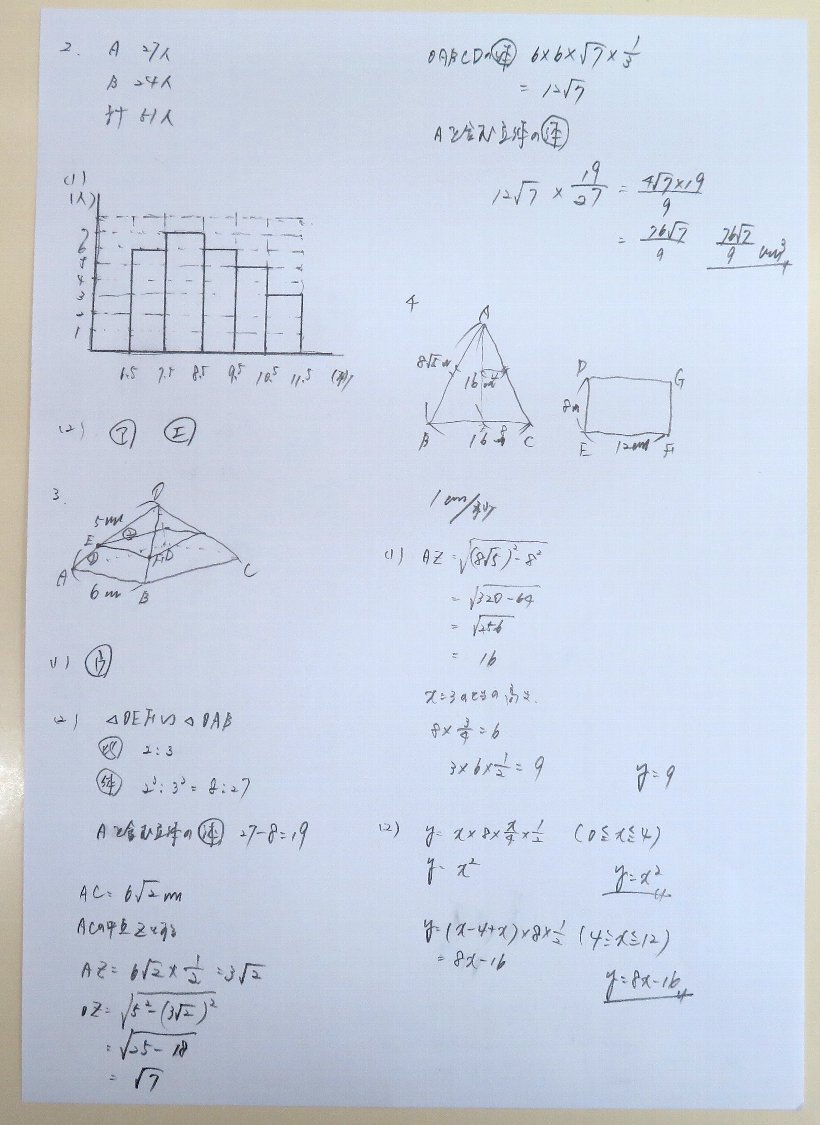 2. A 27人
B 24人
計 51人
(1)
(人)
7
6
5
4
3
2
1
6.5 7.5 8.5 9.5 10.5 11.5 (秒)
(2) ㋐ ㋓
3.
O
5cm
E
②
①
F
D
A
C
6cm
B
(1)
(2) △OEF∽△OAB
2:3
体 2³:3³=8:27
Aを含む立体の体 27-8=19
AC=6√2cm
ACの中点Zとする
AZ=6√2×1/2=3√2
OZ=√(5²-(3√2)²)
=√(25-18)
=√7
OABCDの体 6×6×√7×1/3
=12√7
Aを含む立体の体
12√7×19/27=4√7×19/9
=76√7/9 76√7/9 cm³
4
A
8√5cm
16cm
B 16cm 8 C
D G
8cm
E 12cm F
1cm/秒
(1) AZ=√((8√5)²-8²)
=√(320-64)
=√256
=16
x=3のときの高さ
8×3/4=6
3×6×1/2=9 y=9
(2) y=x×8×x/4×1/2 (0≦x≦4)
y=x² y=x²
y=(x-4+x)×8×1/2 (4≧x≦12)
=8x-16
y=8x-16